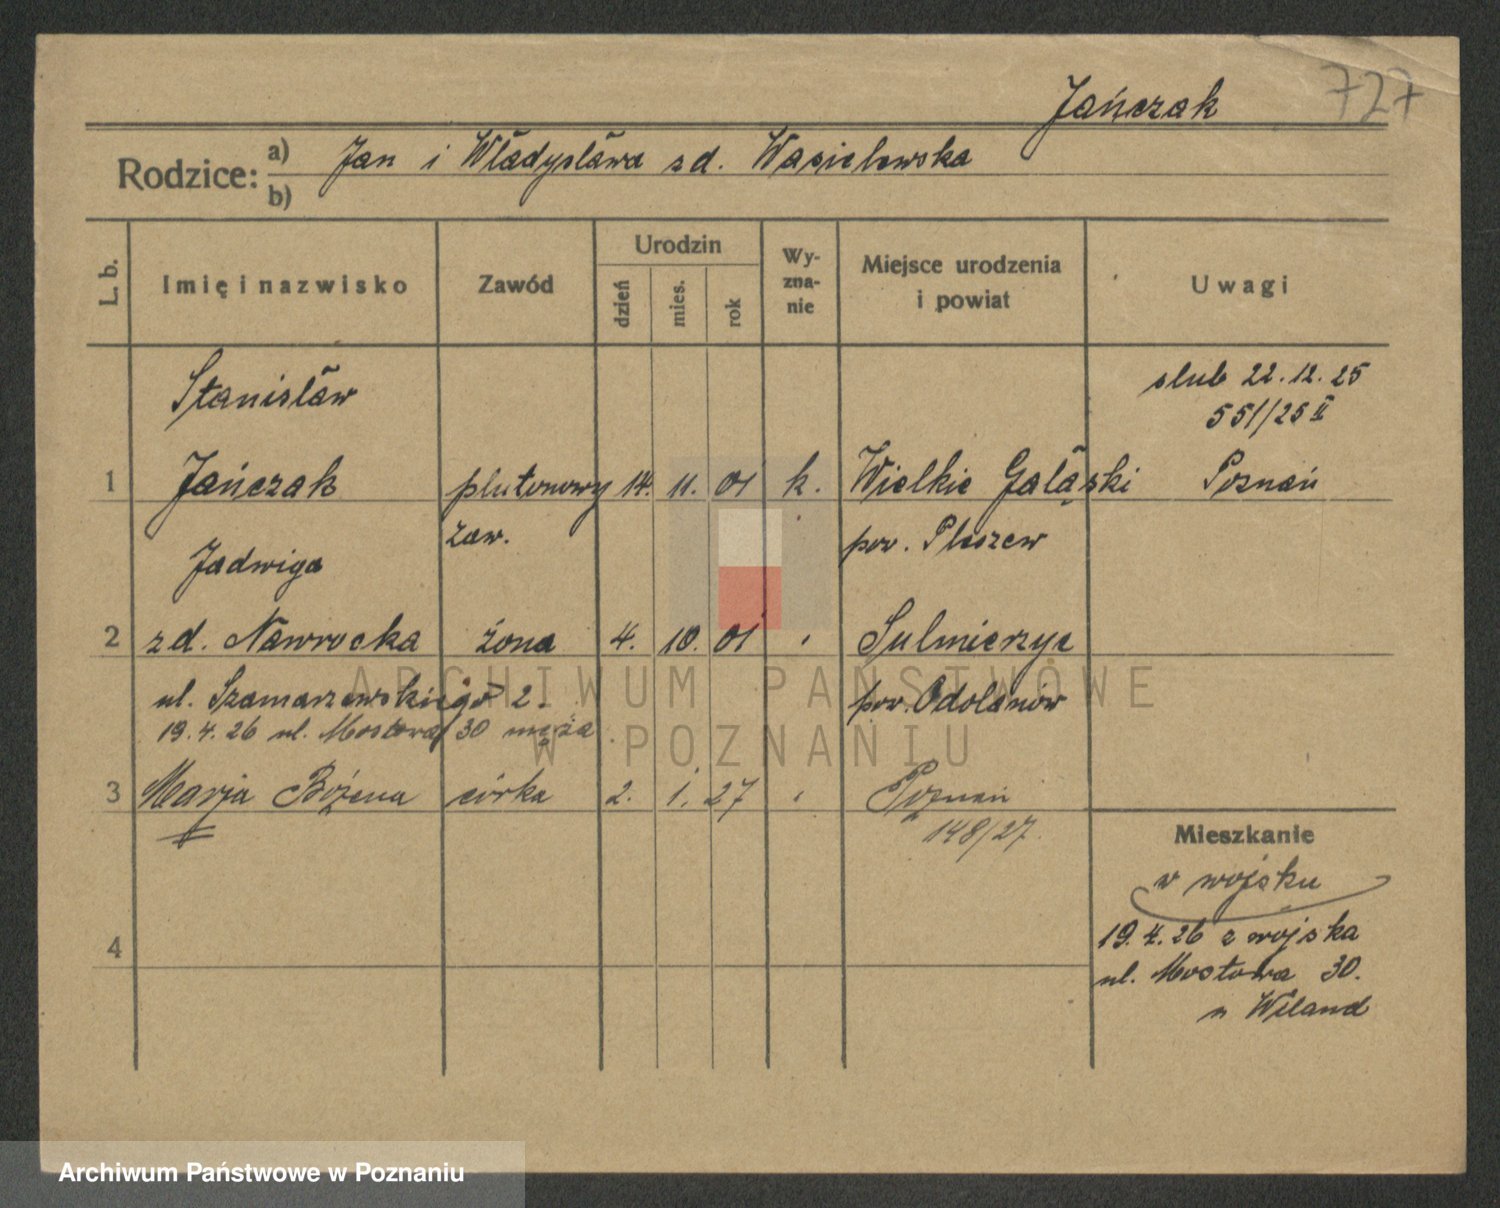 727
Jańczak
Rodzice: a) Jan i Władysława z d. Wasielewska
b)
L. b. Imię i nazwisko Zawód Urodzin dzień mies. rok Wyznanie Miejsce urodzenia i powiat Uwagi
Stanisław ślub 22.12.25
551/25 II
1 Jańczak plutonowy 14. 11. 01 k. Wielkie Galąski Poznań
zaw. pow. Pleszew
Jadwiga
2 z d. Nawrocka żona 4. 10. 01 Sulmierzyc
ul. Szamarzewskiego 2. pow. Odolanów
19.4.26 ul. Mostowa 30 męża
3 Marja Bożena córka 2. 1. 27 Poznań
148/27.
Mieszkanie
w wojsku
4
19.4.26 z wojska
ul. Mostowa 30.
u Wiland
ARCHIWUM PAŃSTWOWE
W POZNANIU
Archiwum Państwowe w Poznaniu